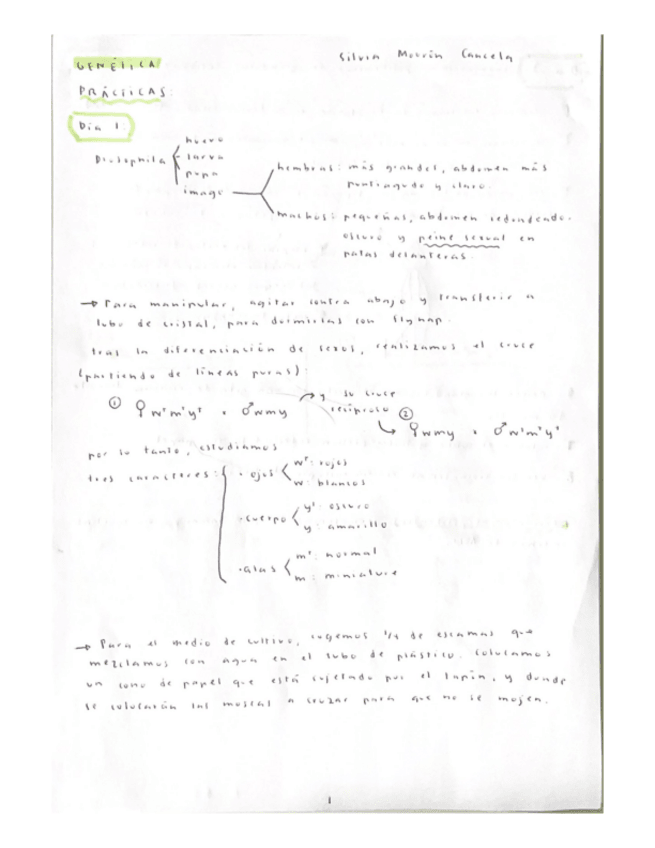 Silvia Cancela
GENÉTICA
PRÁCTICAS:
Día 1:
Drosophila
huevo
larva
pupa
imago
hembras: más grandes, abdomen más
puntiagudo y claro.
machos: pequeñas, abdomen redondeado.
oscuro y peine sexual en
patas delanteras
→ Para manipular, agitar contra abajo y transferir a
tubo de cristal, para dormirlas con flynap.
tras la diferenciación de sexos, realizamos el cruce
(partiendo de líneas puras):
① ♀ w⁺m⁺y⁺ x ♂ wmy
y su cruce
recíproco ②
♀ wmy x ♂ w⁺m⁺y⁺
por lo tanto, estudiamos
tres caracteres:
· ojos
w⁺: rojos
w: blancos
· cuerpo
y⁺: oscuro
y: amarillo
· alas
m⁺: normal
m: miniature
→ Para el medio de cultivo, cogemos 1/4 de escamas que
mezclamos con agua en el tubo de plástico. colocamos
un cono de papel que está sujetado por el tapón, y donde
se colocarán las moscas a cruzar para que no se mojen.
1